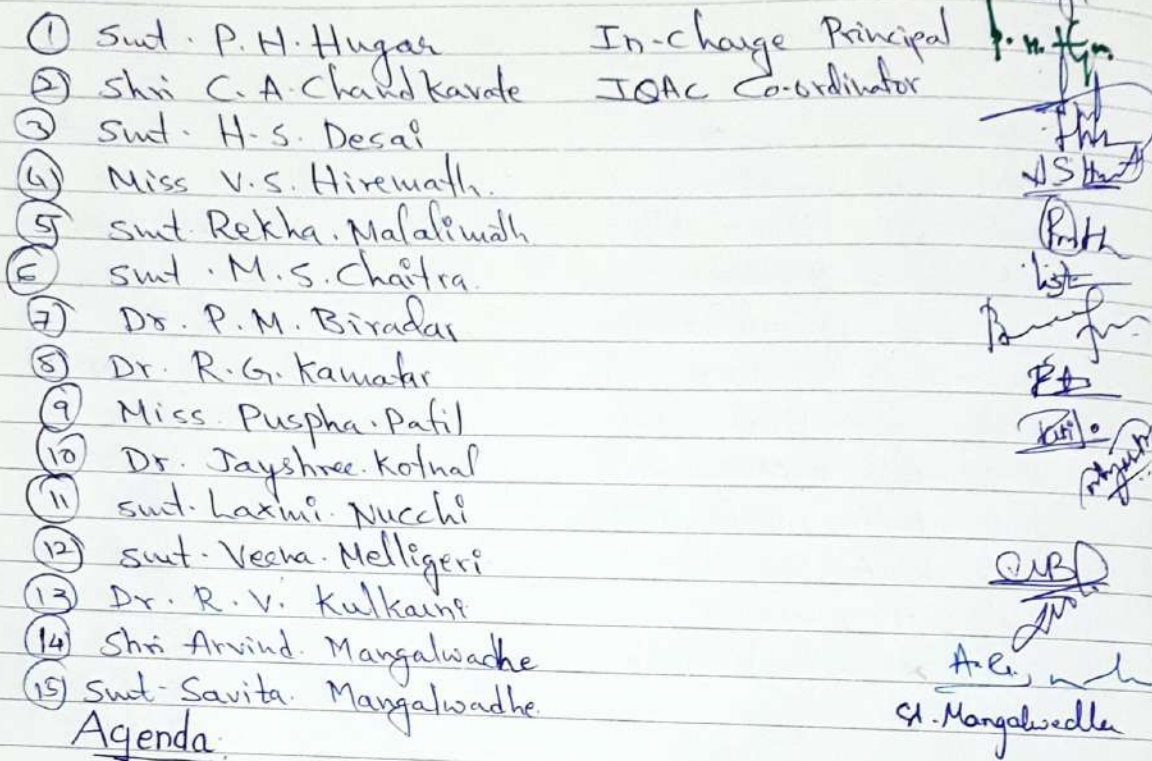 ① Smt. P. H. Hugar In-Charge Principal
② Shri C. A. Chandkavate IQAC Co-ordinator
③ Smt. H. S. Desai
④ Miss V. S. Hiremath.
⑤ Smt. Rekha. Malalimath
⑥ Smt. M. S. Chaitra.
⑦ Dr. P. M. Biradar
⑧ Dr. R. G. Kamatar
⑨ Miss. Puspha. Patil
⑩ Dr. Jayshree. Kotnal
⑪ Smt. Laxmi. Nucchi
⑫ Smt. Veena. Melligeri
⑬ Dr. R. V. Kulkarni
⑭ Shri Arvind. Mangalwadhe
⑮ Smt. Savita. Mangalwadhe.
Agenda.